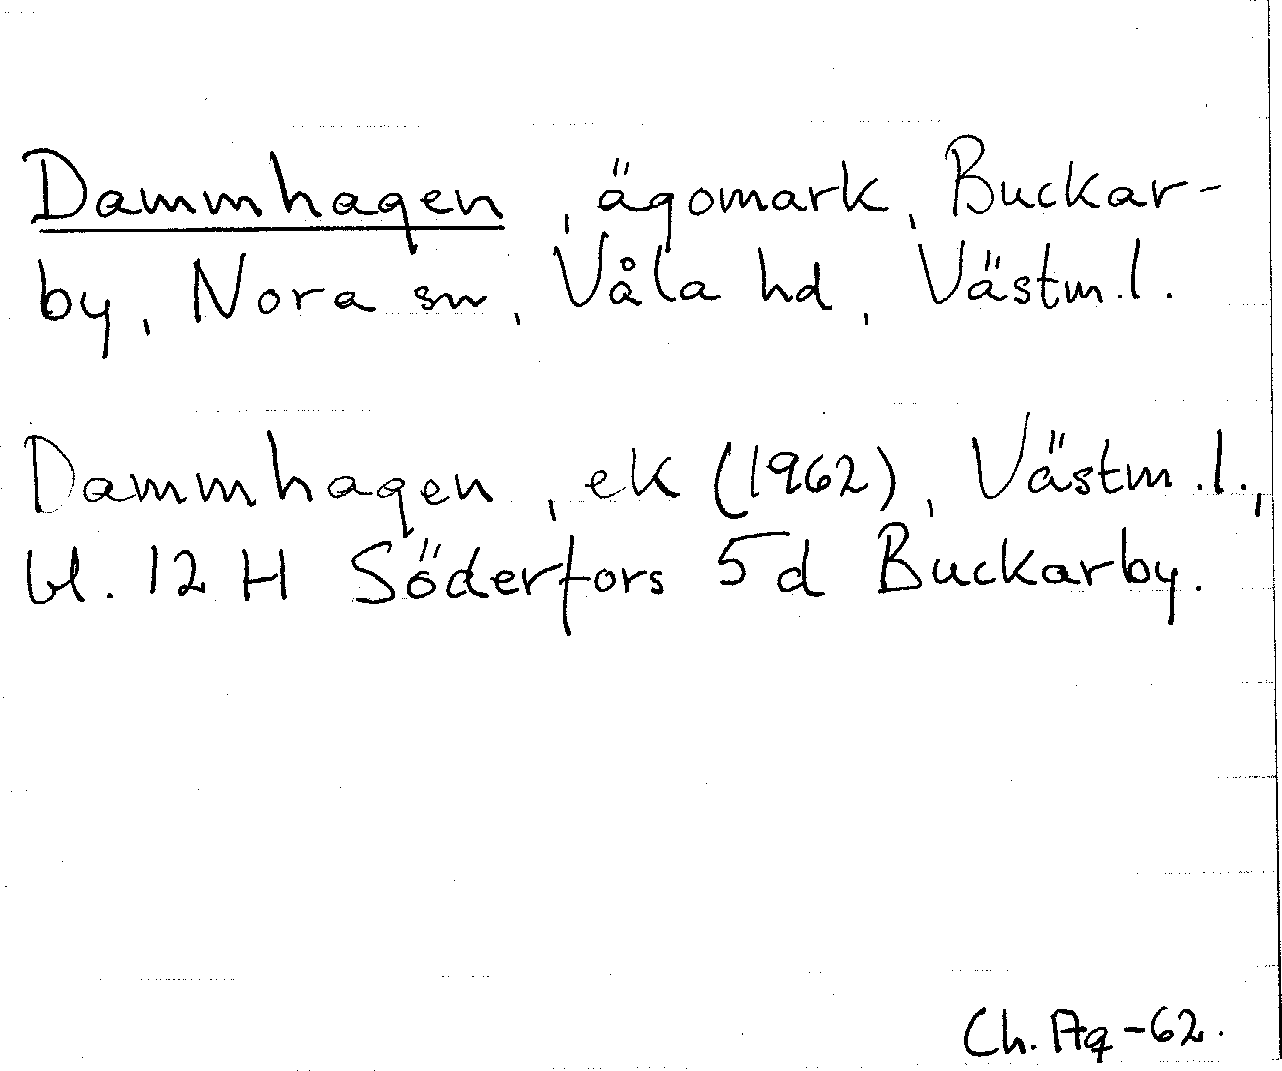 Dammhagen, ägomark, Buckar-
by, Nora sn, Våla hd, Västm.l.
Dammhagen, ek (1962), Västm.l.,
bl. 12 H Söderfors 5 d Buckarby.
Ch. Ag -62.